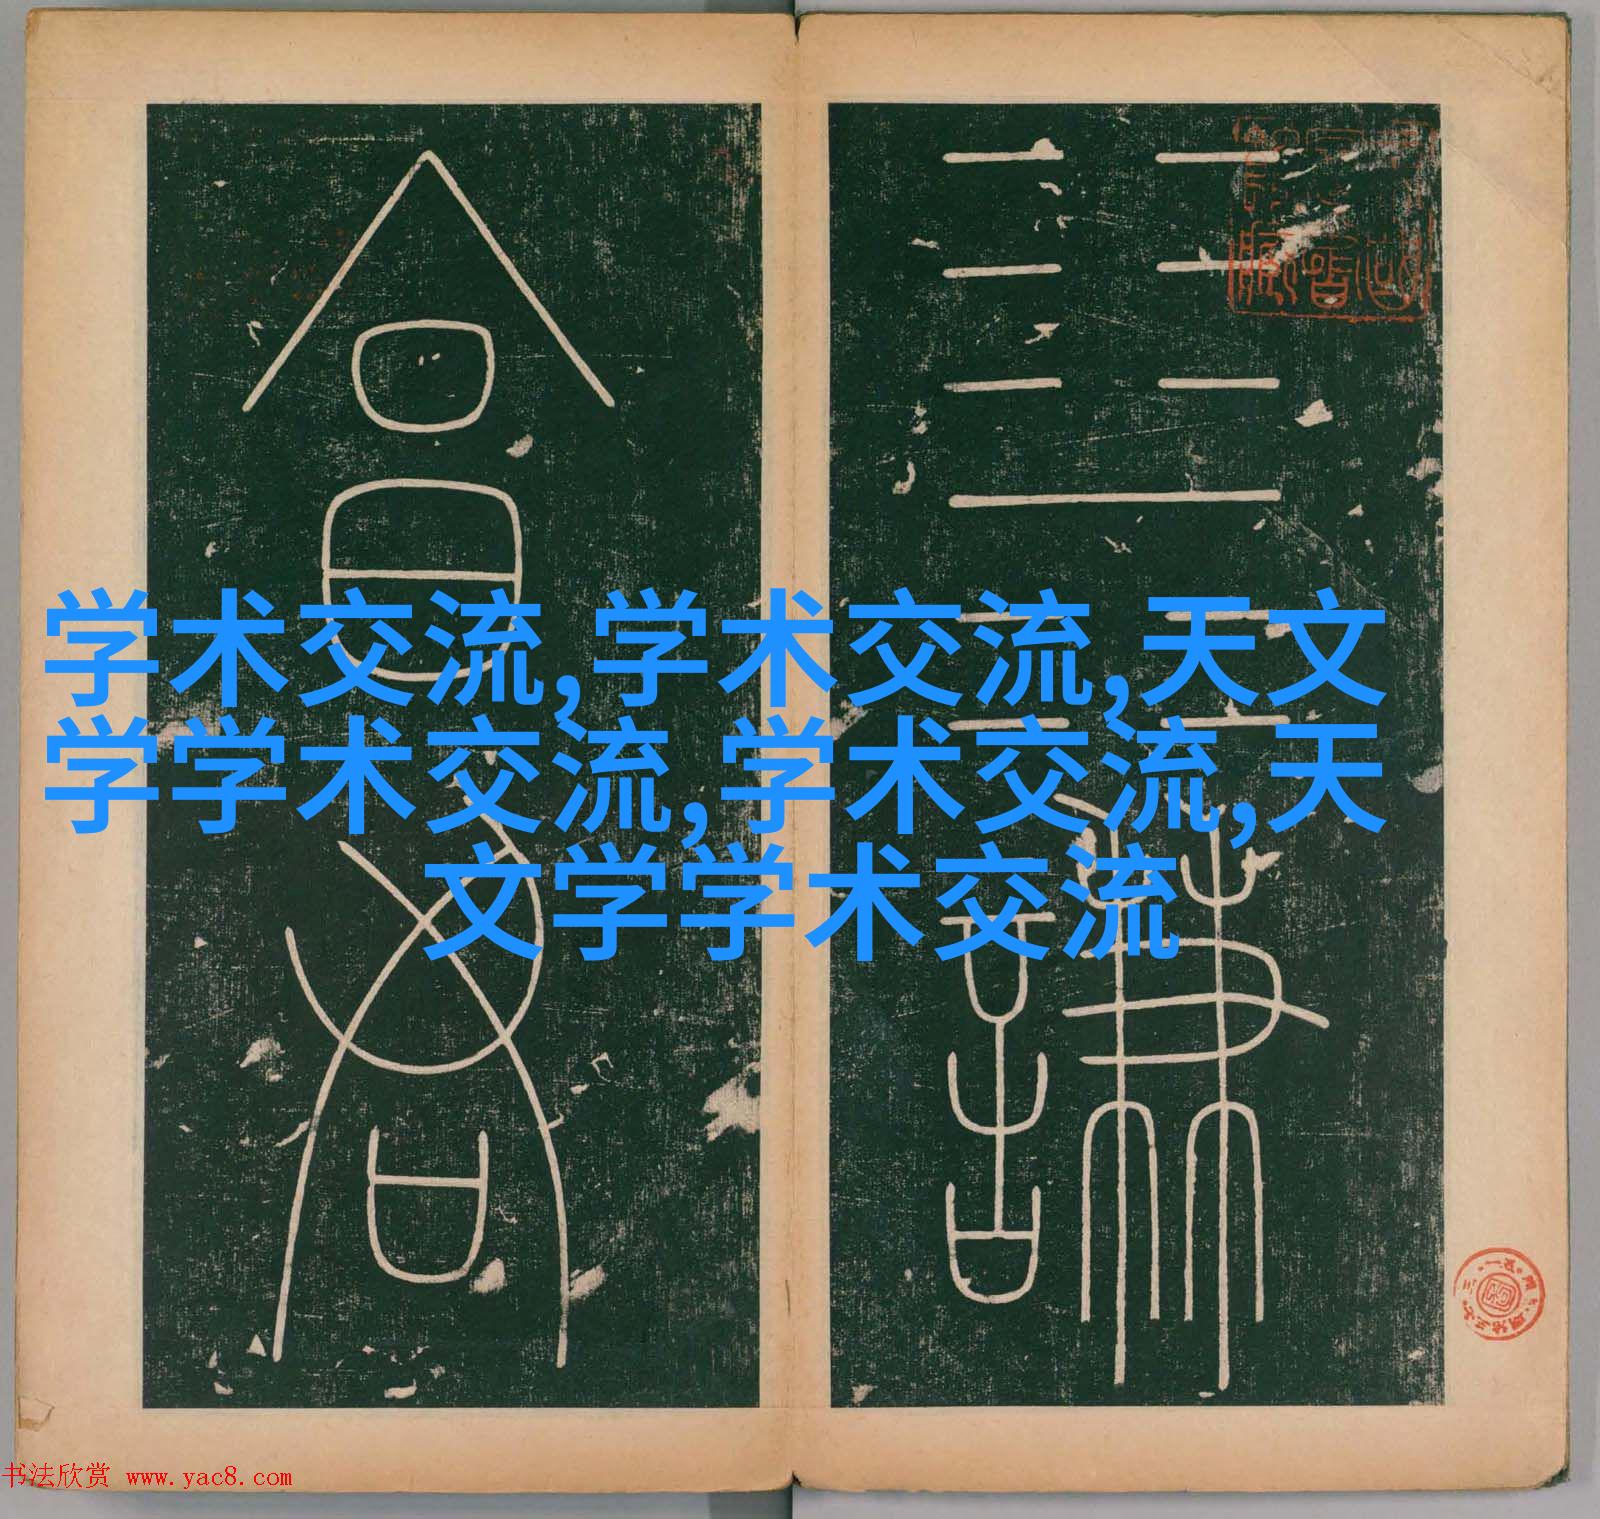 ䷎
謙
亯
君
学术交流,学术交流,天文
学学术交流,学术交流,天
文学学术交流
书法欣赏 www.yac8.com